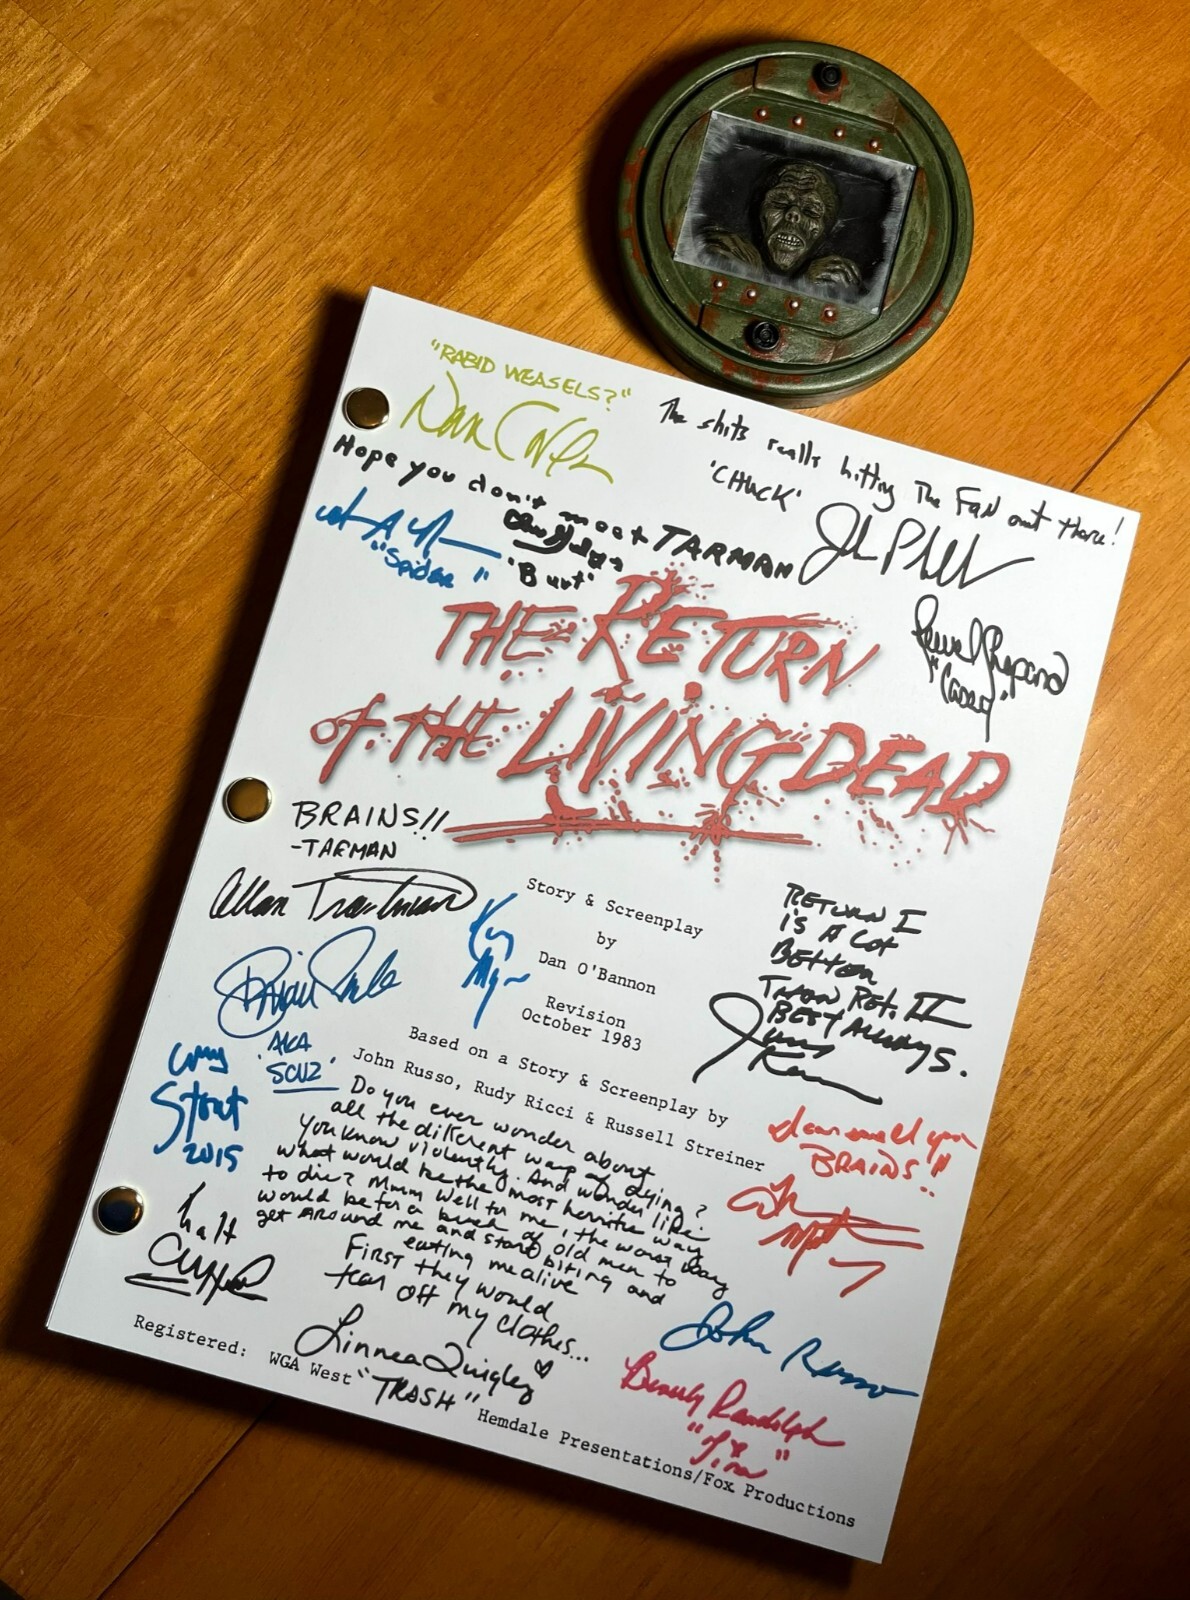 "RABID WEASELS?"
The shits really hitting The FAN out there!
'CHUCK'
Hope you don't meet TARMAN
"Spider"
'Burt'
John Philbin
Jewel Shepard
"Casey"
THE RETURN
of THE LIVING DEAD
BRAINS!!
-TARMAN
Allan Trautman
Story & Screenplay
by
Dan O'Bannon
Revision
October 1983
Based on a Story & Screenplay by
John Russo, Rudy Ricci & Russell Streiner
RETURN I
IS A LOT
BETTER
THAN RET. II
BEST ALWAYS.
James
Karen
Brian Peck
AKA
SCUZ
Stout
2015
Do you ever wonder about
all the different ways of dying?
You know violently. And wonder like
what would be the most horrible way
to die? Mmm Well to me, the worst way
would be for a bunch of old men to
get around me and start biting and
eating me alive
First they would
tear off my clothes...
Linnea Quigley
"TRASH"
BRAINS!!
John Russo
Beverly Randolph
"Tina"
Registered: WGA West
Hemdale Presentations/Fox Productions